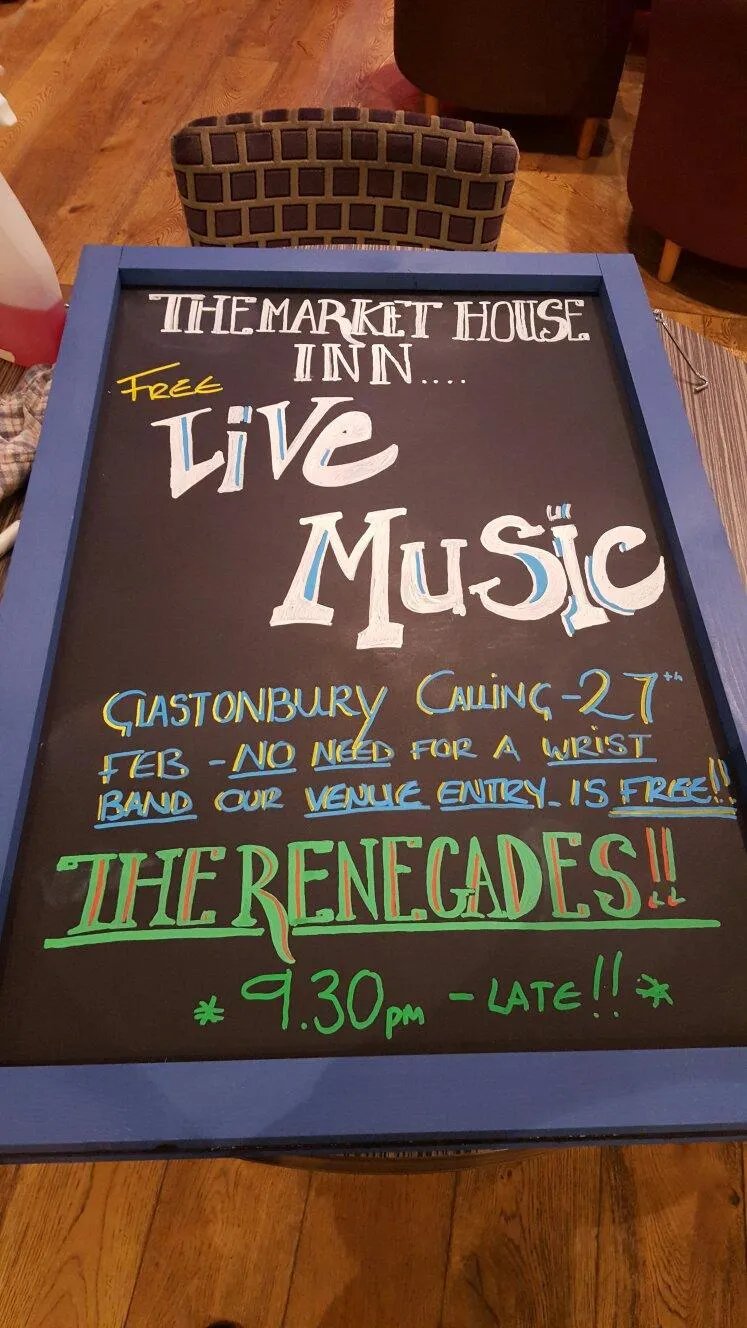 THE MARKET HOUSE
INN....
FREE
LiVe
MuSiC
GLASTONBURY CALLING - 27th
FEB - NO NEED FOR A WRIST
BAND OUR VENUE ENTRY IS FREE!!
THE RENEGADES!!
* 9.30pm - LATE!! *